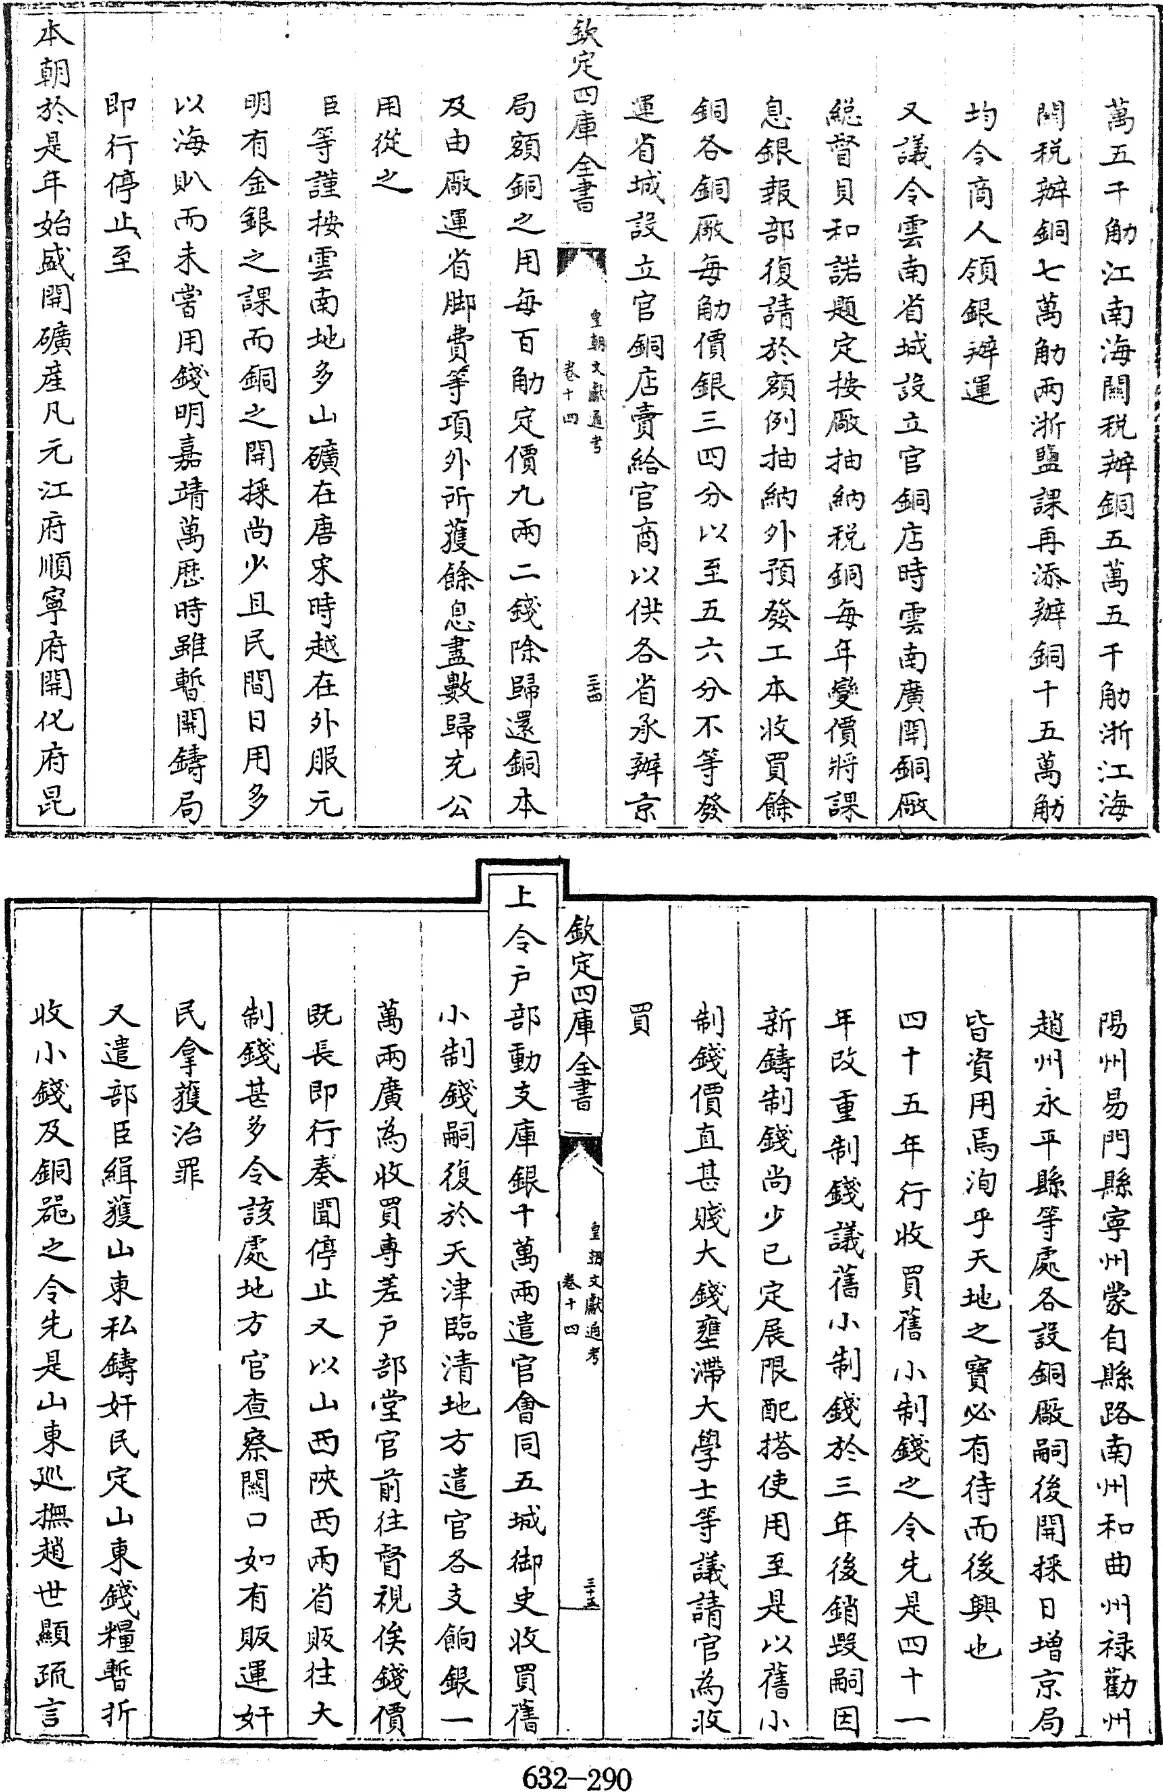 萬五千觔江南海關税辦銅五萬五千觔浙江海
關税辦銅七萬觔兩浙鹽課再添辦銅十五萬觔
均令商人領銀辦運
又議令雲南省城設立官銅店時雲南廣開銅厰
總督貝和諾題定按厰抽納税銅每年變價將課
息銀報部復請於額例抽納外預發工本收買餘
銅各銅厰每觔價銀三四分以至五六分不等發
運省城設立官銅店賣給官商以供各省承辦京
欽定四庫全書
皇朝文獻通考
卷十四
三十四
局額銅之用每百觔定價九兩二錢除歸還銅本
及由厰運省脚費等項外所獲餘息盡數歸充公
用從之
臣等謹按雲南地多山礦在唐宋時越在外服元
明有金銀之課而銅之開採尚少且民間日用多
以海䝤而未嘗用錢明嘉靖萬歴時雖暫開鑄局
即行停止至
本朝於是年始盛開礦産凡元江府順寧府開化府昆
陽州易門縣寧州蒙自縣路南州和曲州禄勸州
趙州永平縣等處各設銅厰嗣後開採日增京局
皆資用焉洵乎天地之寶必有待而後興也
四十五年行收買舊小制錢之令先是四十一
年改重制錢議舊小制錢於三年後銷毀嗣因
新鑄制錢尚少已定展限配搭使用至是以舊小
制錢價直甚賤大錢壅滯大學士等議請官為收
買
欽定四庫全書
皇朝文獻通考
卷十四
三十五
上令戸部動支庫銀十萬兩遣官會同五城御史收買舊
小制錢嗣復於天津臨清地方遣官各支餉銀一
萬兩廣為收買專差戸部堂官前往督視俟錢價
既長即行奏聞停止又以山西陜西兩省販往大
制錢甚多令該處地方官查察關口如有販運奸
民拿獲治罪
又遣部臣緝獲山東私鑄奸民定山東錢糧暫折
收小錢及銅器之令先是山東廵撫趙世顯疏言
632-290